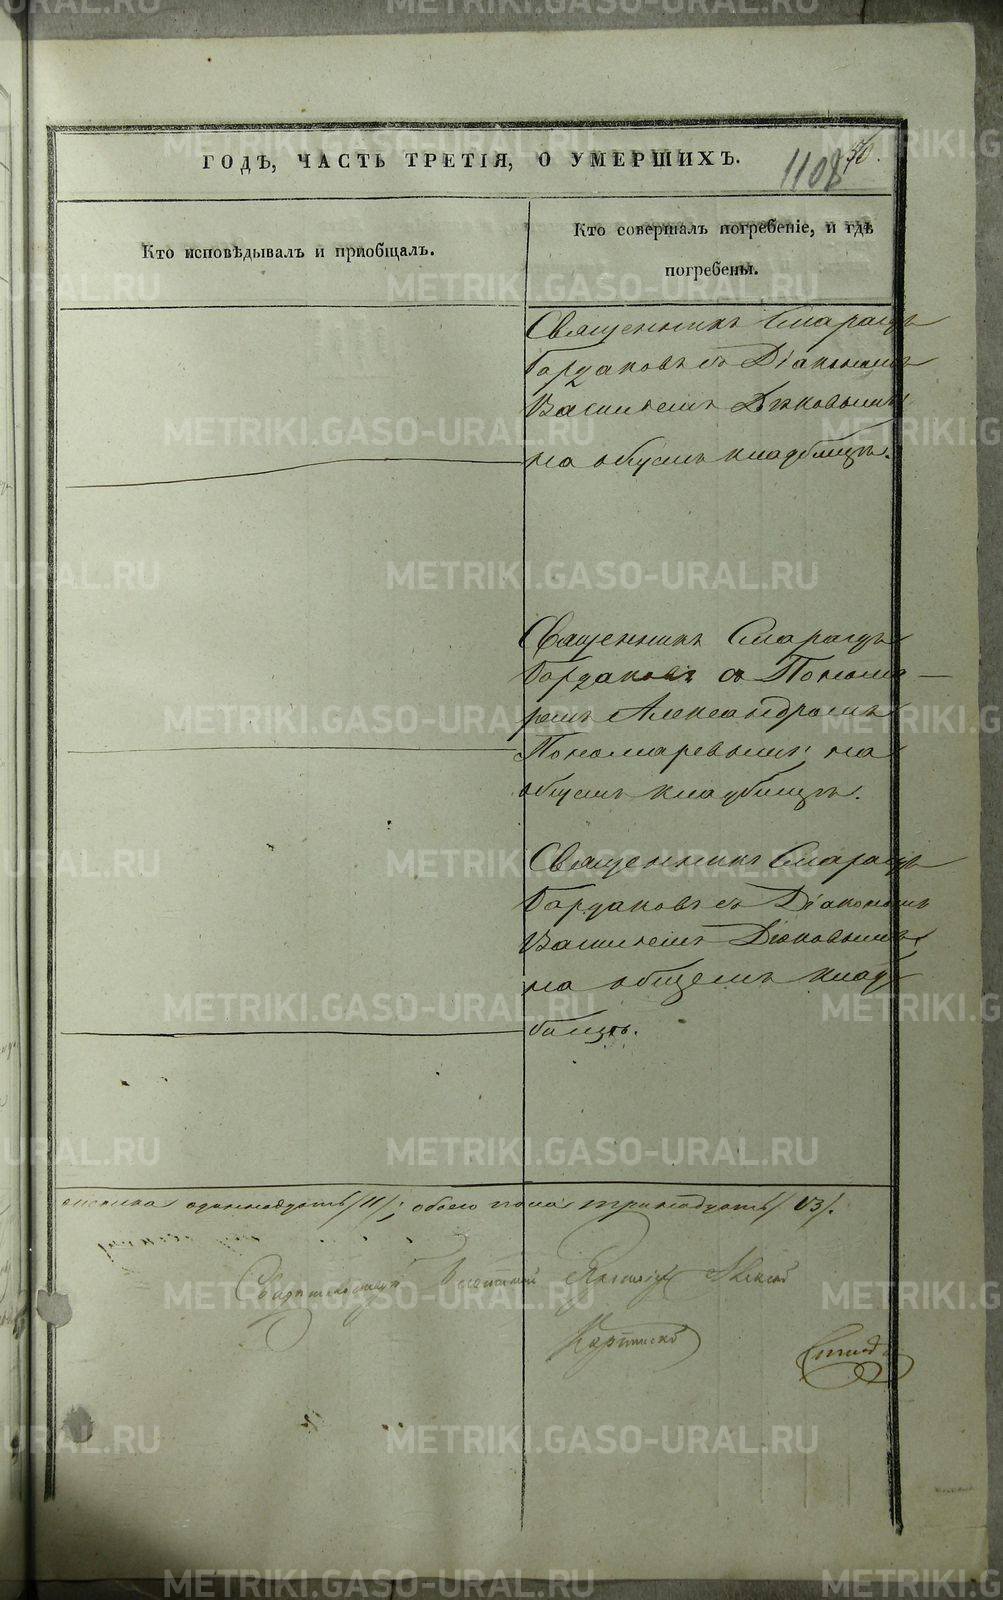 ГОДѢ, ЧАСТЬ ТРЕТІЯ, О УМЕРШИХЪ.
1108
50.
Кто исповѣдывалъ и приобщалъ.
Кто совершалъ погребеніе, и гдѣ
погребены.
Священникъ Смарагдъ
Бордаковъ съ Діакономъ
Василіемъ Дьяковымъ
на общемъ кладбищѣ.
Священникъ Смарагдъ
Бордаковъ съ Понома-
ремъ Александромъ
Пономаревымъ на
общемъ кладбищѣ.
Священникъ Смарагдъ
Бордаковъ съ Діакономъ
Василіемъ Дьяковымъ
на общемъ клад
бищѣ.
одиннадцать /11/; обоего пола тринадцать /13/.
METRIKI.GASO-URAL.RU